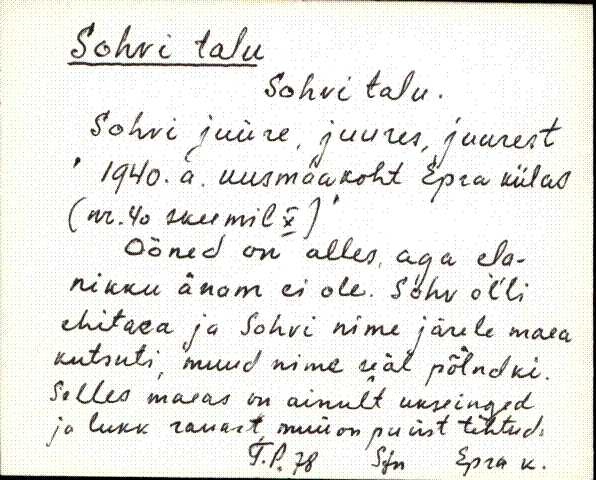 Sohvi talu
Sohvi talu.
Sohvi juure, juures, juurest
' 1940. a. uusmaakoht Epra külas
(nr. 40 skeemil X) '
Ooned on alles, aga ela-
nikku änam ei ole. Sohv olli
ehitaea ja Sohvi nime järele maea
kutsuti, muud nime seäl põlndki.
Selles maeas on ainult ukseinged
ja lukk rauast, muu on puust tehtud.
T.P. 78 Sjn Epra k.